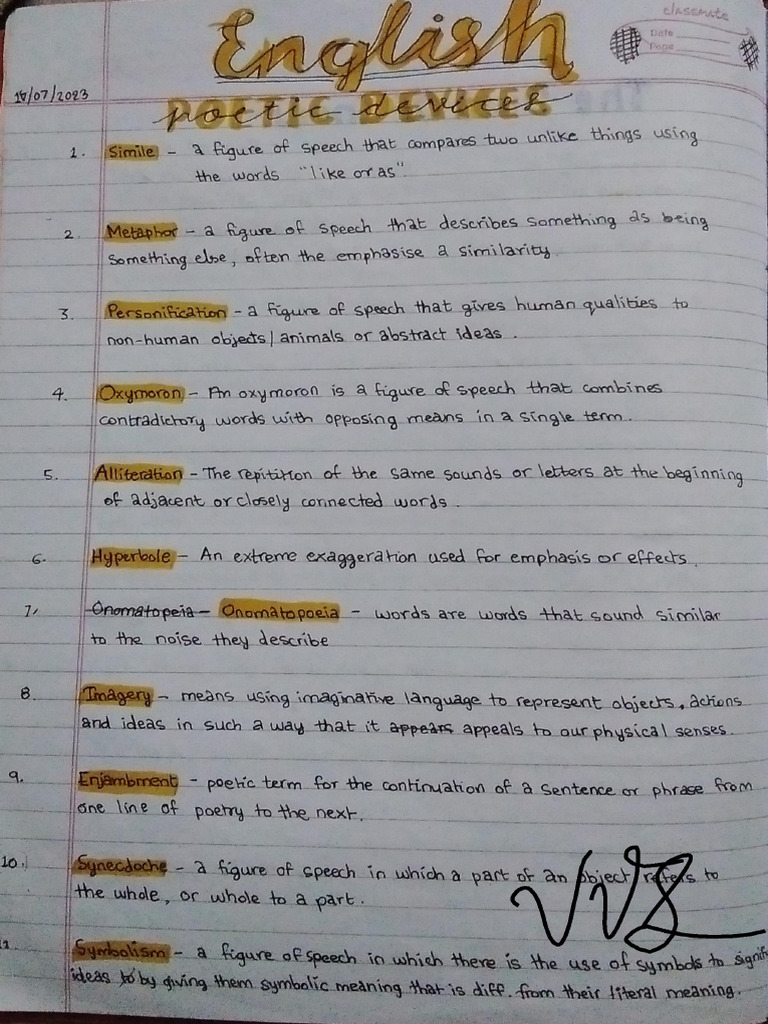 classmate
Date
Page
English
18/07/2023
POETIC DEVICES
poetic devices
1. Simile - a figure of speech that compares two unlike things using
the words "like or as".
2. Metaphor - a figure of speech that describes something as being
something else, often the emphasise a similarity.
3. Personification - a figure of speech that gives human qualities to
non-human objects/animals or abstract ideas.
4. Oxymoron - An oxymoron is a figure of speech that combines
contradictory words with opposing means in a single term.
5. Alliteration - The repitition of the same sounds or letters at the beginning
of adjacent or closely connected words.
6. Hyperbole - An extreme exaggeration used for emphasis or effects.
7. Onomatopeia - Onomatopoeia - words are words that sound similar
to the noise they describe
8. Imagery - means using imaginative language to represent objects, actions
and ideas in such a way that it appears appeals to our physical senses.
9. Enjambment - poetic term for the continuation of a sentence or phrase from
one line of poetry to the next.
10. Synecdoche - a figure of speech in which a part of an object refers to
the whole, or whole to a part.
Symbolism - a figure of speech in which there is the use of symbols to signify
ideas to by giving them symbolic meaning that is diff. from their literal meaning.